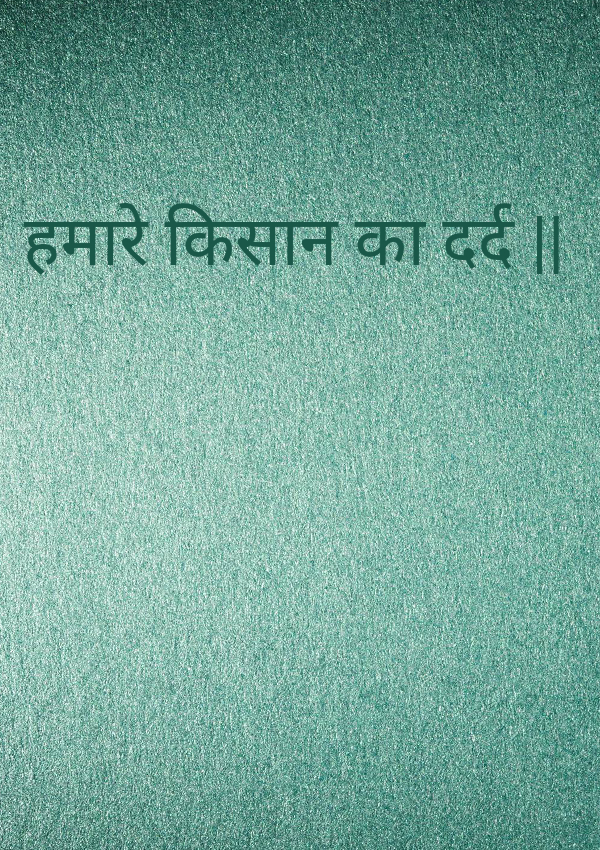 हमारे किसान का दर्द ||